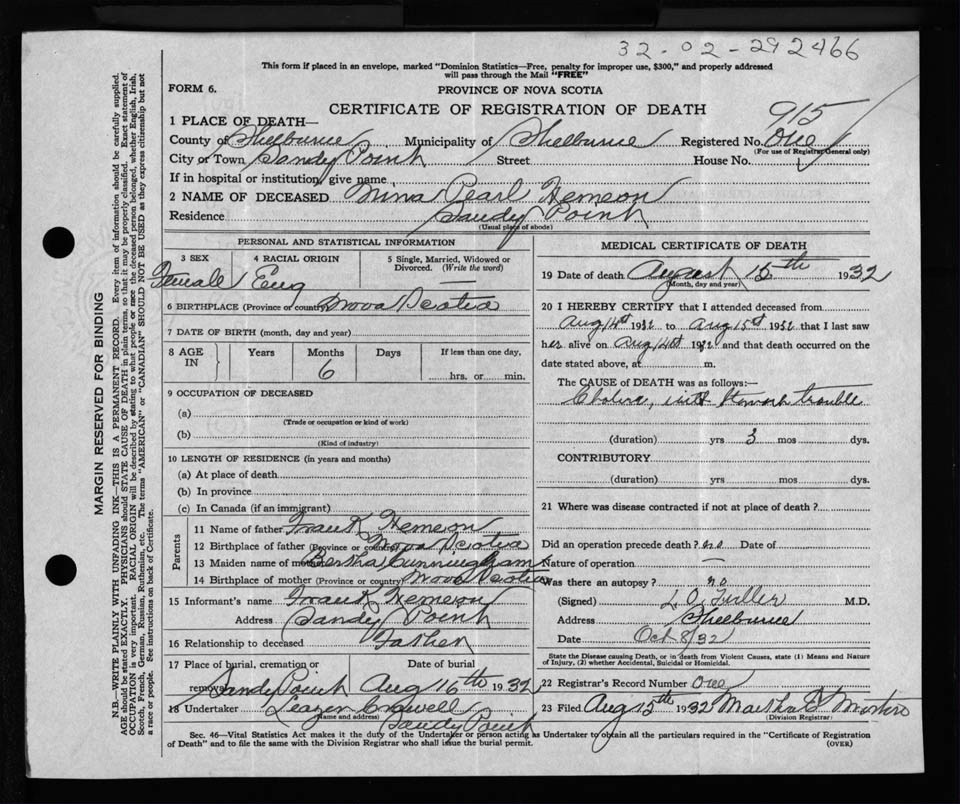 32-02-292466
This form if placed in an envelope, marked "Dominion Statistics—Free, penalty for improper use, $300," and properly addressed
will pass through the Mail "FREE"
FORM 6.
PROVINCE OF NOVA SCOTIA
CERTIFICATE OF REGISTRATION OF DEATH
915
1 PLACE OF DEATH—
County of Shelburne Municipality of Shelburne Registered No. One
(For use of Registrar General only)
City or Town Sandy Point Street House No.
If in hospital or institution, give name
2 NAME OF DECEASED Mina Pearl Hemeon
Residence Sandy Point
(Usual place of abode)
PERSONAL AND STATISTICAL INFORMATION
3 SEX 4 RACIAL ORIGIN 5 Single, Married, Widowed or Divorced. (Write the word)
Female Eng —
6 BIRTHPLACE (Province or country) Nova Scotia
7 DATE OF BIRTH (month, day and year)
8 AGE IN Years Months Days If less than one day,
6 hrs. or min.
9 OCCUPATION OF DECEASED
(a)
(Trade or occupation or kind of work)
(b)
(Kind of industry)
10 LENGTH OF RESIDENCE (in years and months)
(a) At place of death
(b) In province
(c) In Canada (if an immigrant)
Parents
11 Name of father Frank Hemeon
12 Birthplace of father (Province or country) Nova Scotia
13 Maiden name of mother Bertha Cunningham
14 Birthplace of mother (Province or country) Nova Scotia
15 Informant's name Frank Hemeon
Address Sandy Point
16 Relationship to deceased Father
17 Place of burial, cremation or removal Date of burial
Sandy Point Aug 16th 1932
18 Undertaker Crowell
(Name and address) Sandy Point
MEDICAL CERTIFICATE OF DEATH
19 Date of death August 15th 1932
(Month, day and year)
20 I HEREBY CERTIFY that I attended deceased from
Aug 14st 1932 to Aug 15st 1932 that I last saw
her alive on Aug 14st 1932 and that death occurred on the
date stated above, at m.
The CAUSE OF DEATH was as follows:—
Cholera, with stomach trouble
(duration) yrs 3 mos dys.
CONTRIBUTORY
(duration) yrs mos dys.
21 Where was disease contracted if not at place of death?
Did an operation precede death? no Date of
Nature of operation —
Was there an autopsy? no
(Signed) L.O. Fuller M.D.
Address Shelburne
Date Oct 8/32
State the Disease causing Death, or in death from Violent Causes, state (1) Means and Nature
of Injury, (2) whether Accidental, Suicidal or Homicidal.
22 Registrar's Record Number One
23 Filed Aug 15th 1932 Martha
(Division Registrar)
Sec. 46—Vital Statistics Act makes it the duty of the Undertaker or person acting as Undertaker to obtain all the particulars required in the "Certificate of Registration
of Death" and to file the same with the Division Registrar who shall issue the burial permit.
(OVER)
MARGIN RESERVED FOR BINDING
N.B.—WRITE PLAINLY WITH UNFADING INK—THIS IS A PERMANENT RECORD. Every item of information should be carefully supplied.
AGE should be stated EXACTLY. PHYSICIANS should STATE CAUSE OF DEATH in plain terms, so that it may be properly classified. Exact statement of
OCCUPATION is very important. RACIAL ORIGIN will be described by stating to what people or race the deceased person belonged, whether English, Irish,
Scotch, French, German, Russian, Ruthenian, etc. The terms "AMERICAN" or "CANADIAN" SHOULD NOT BE USED as they express citizenship but not
a race or people. See instructions on back of Certificate.